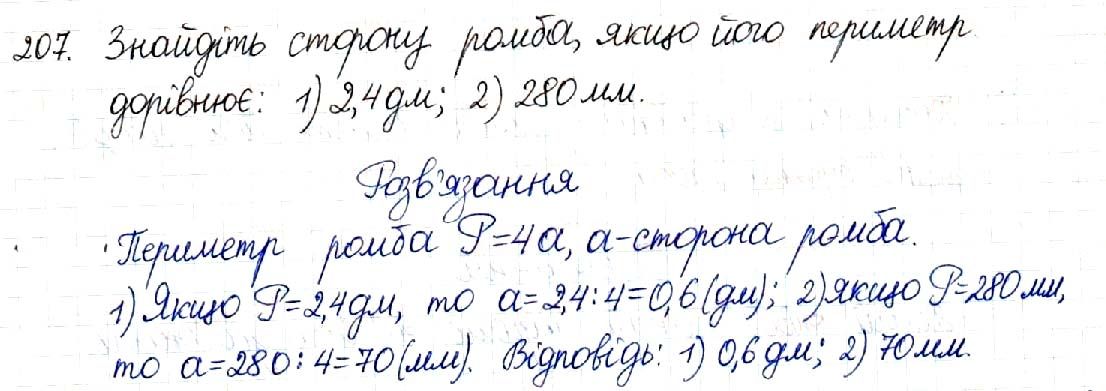 207. Знайдіть сторону ромба, якщо його периметр
дорівнює: 1) 2,4 дм; 2) 280 мм.
Розв'язання
Периметр ромба P=4a, a-сторона ромба.
1) Якщо P=2,4 дм, то a=2,4:4=0,6(дм); 2) якщо P=280 мм,
то a=280:4=70(мм). Відповідь: 1) 0,6 дм; 2) 70 мм.